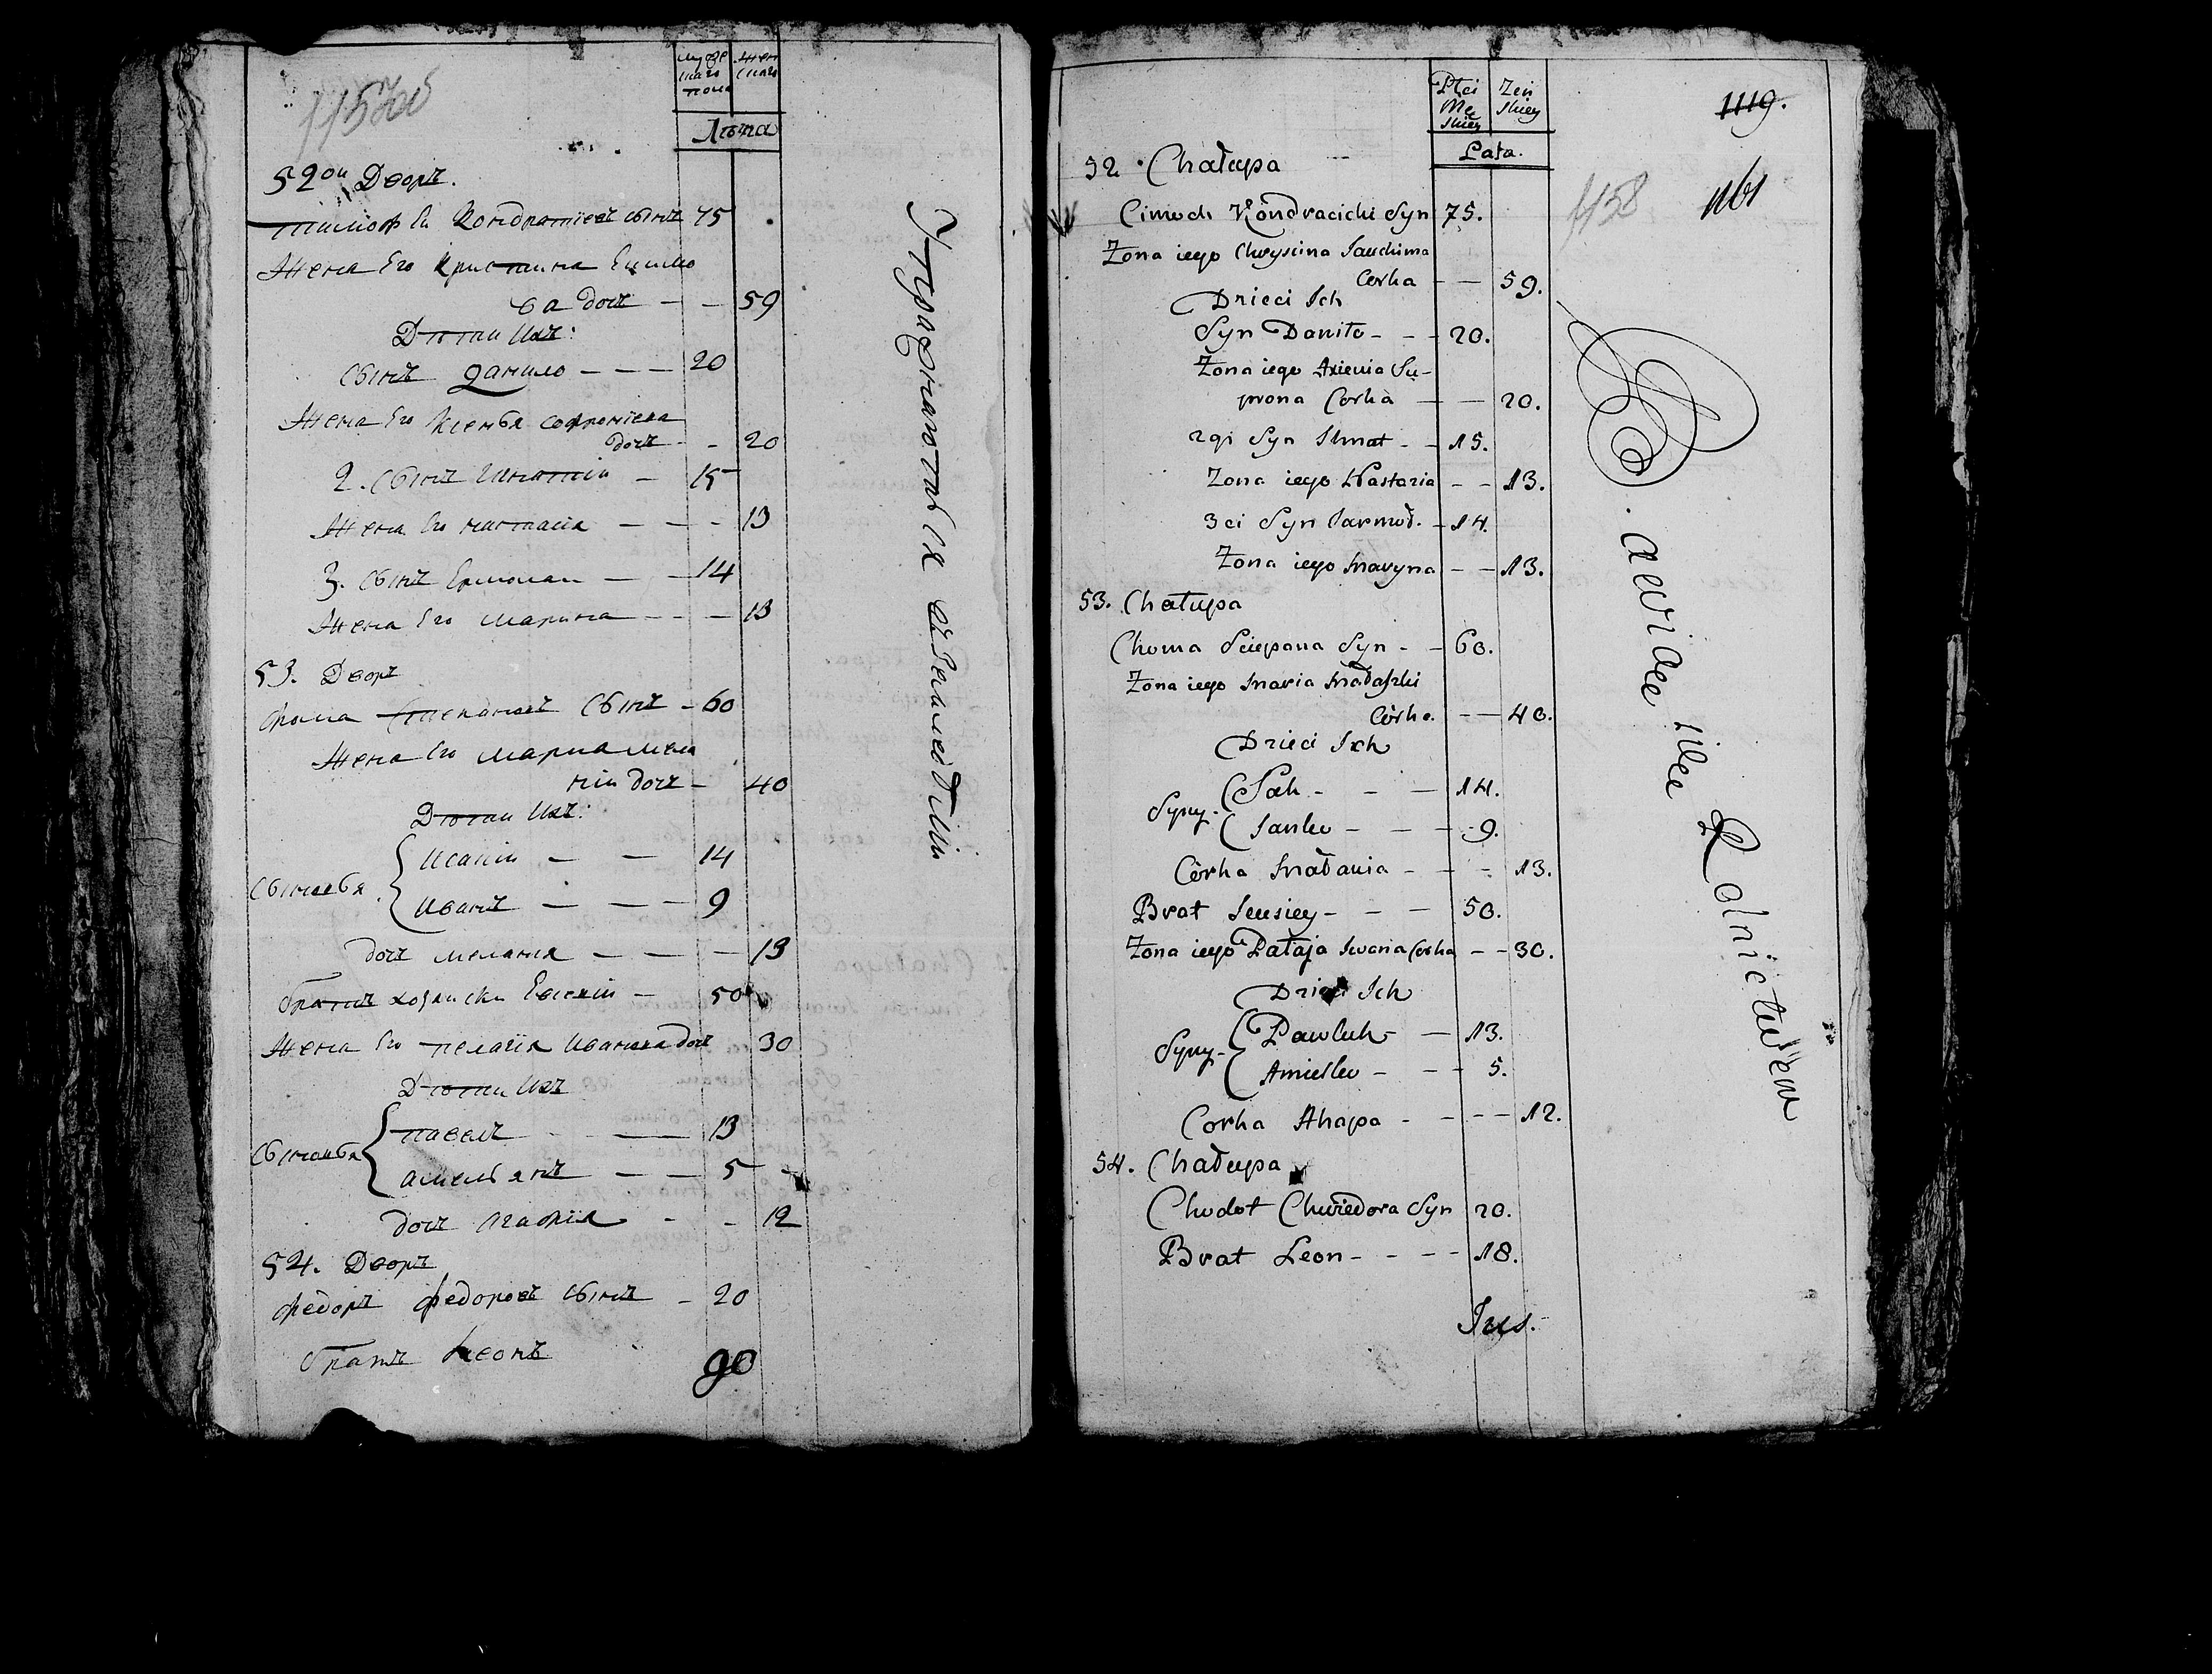 муже
скаго
пола
жен
скаго
Лѣта
52ой Дворъ.
Тимофѣй Кондратіевъ сынъ 75
Жена Его Кристина Ефимо
ва дочь — — 59
Дѣти Ихъ:
Сынъ Данило — — — 20
Жена Его Ксенья Софроніева
дочь - - 20
2. Сынъ Игнатій — 15
Жена Его Настасія — — - 13
3. Сынъ Ермолай — — 14
Жена Его Марина — — — 13
53. Дворъ
Фома Степановъ Сынъ - 60
Жена Его Мариа Мела
ніи дочь — 40
Дѣти Ихъ:
Сыновья
Исакій — — 14
Иванъ — — — 9
дочь Меланія — — — 13
братъ хозяйскій Евсѣй — 50
Жена Его Пелагія Иванова дочь 30
Дѣти Ихъ
Сыновья
Павелъ — 13
Амельянъ — — 5
дочь Агафія - - 12
54. Дворъ
Федоръ Федоровъ сынъ - 20
братъ Леонъ
Упражняються въ Земледѣліи
Płci
Mę
skiey
Żeń
skiey
Lata.
1119.
1158
1161
52. Chałupa
Cimoch Kondracicki Syn 75.
Zona iego Chrysiina Jauchima
Corka — — 59.
Dzieci Ich
Syn Daniło - - - 20.
Zona iego Axienia Su-
prona Corka — — 20.
2gi Syn Ihnat - - 15.
Zona iego Nastazia - - 13.
3ci Syn Jarmoł. - 14.
Zona iego Maryna - - 13.
53. Chałupa
Choma Sciepana Syn - - 60.
Zona iego Maria Małaszki
Córka. - — 40.
Dzieci Ich
Syny -
Sak - - — 14.
Janko - — - 9.
Córka Małania - - - 13.
Brat Jeusiey - - — 50.
Zona iego Pałaja Iwana Corka - - 30.
Dzieci Ich
Syny -
Pawluk — 13.
Amielko - - - 5.
Corka Ahapa - - - - 12.
54. Chałupa
Chodot Chwiedora Syn 20.
Brat Leon - - - - 18.
Rolnictwem